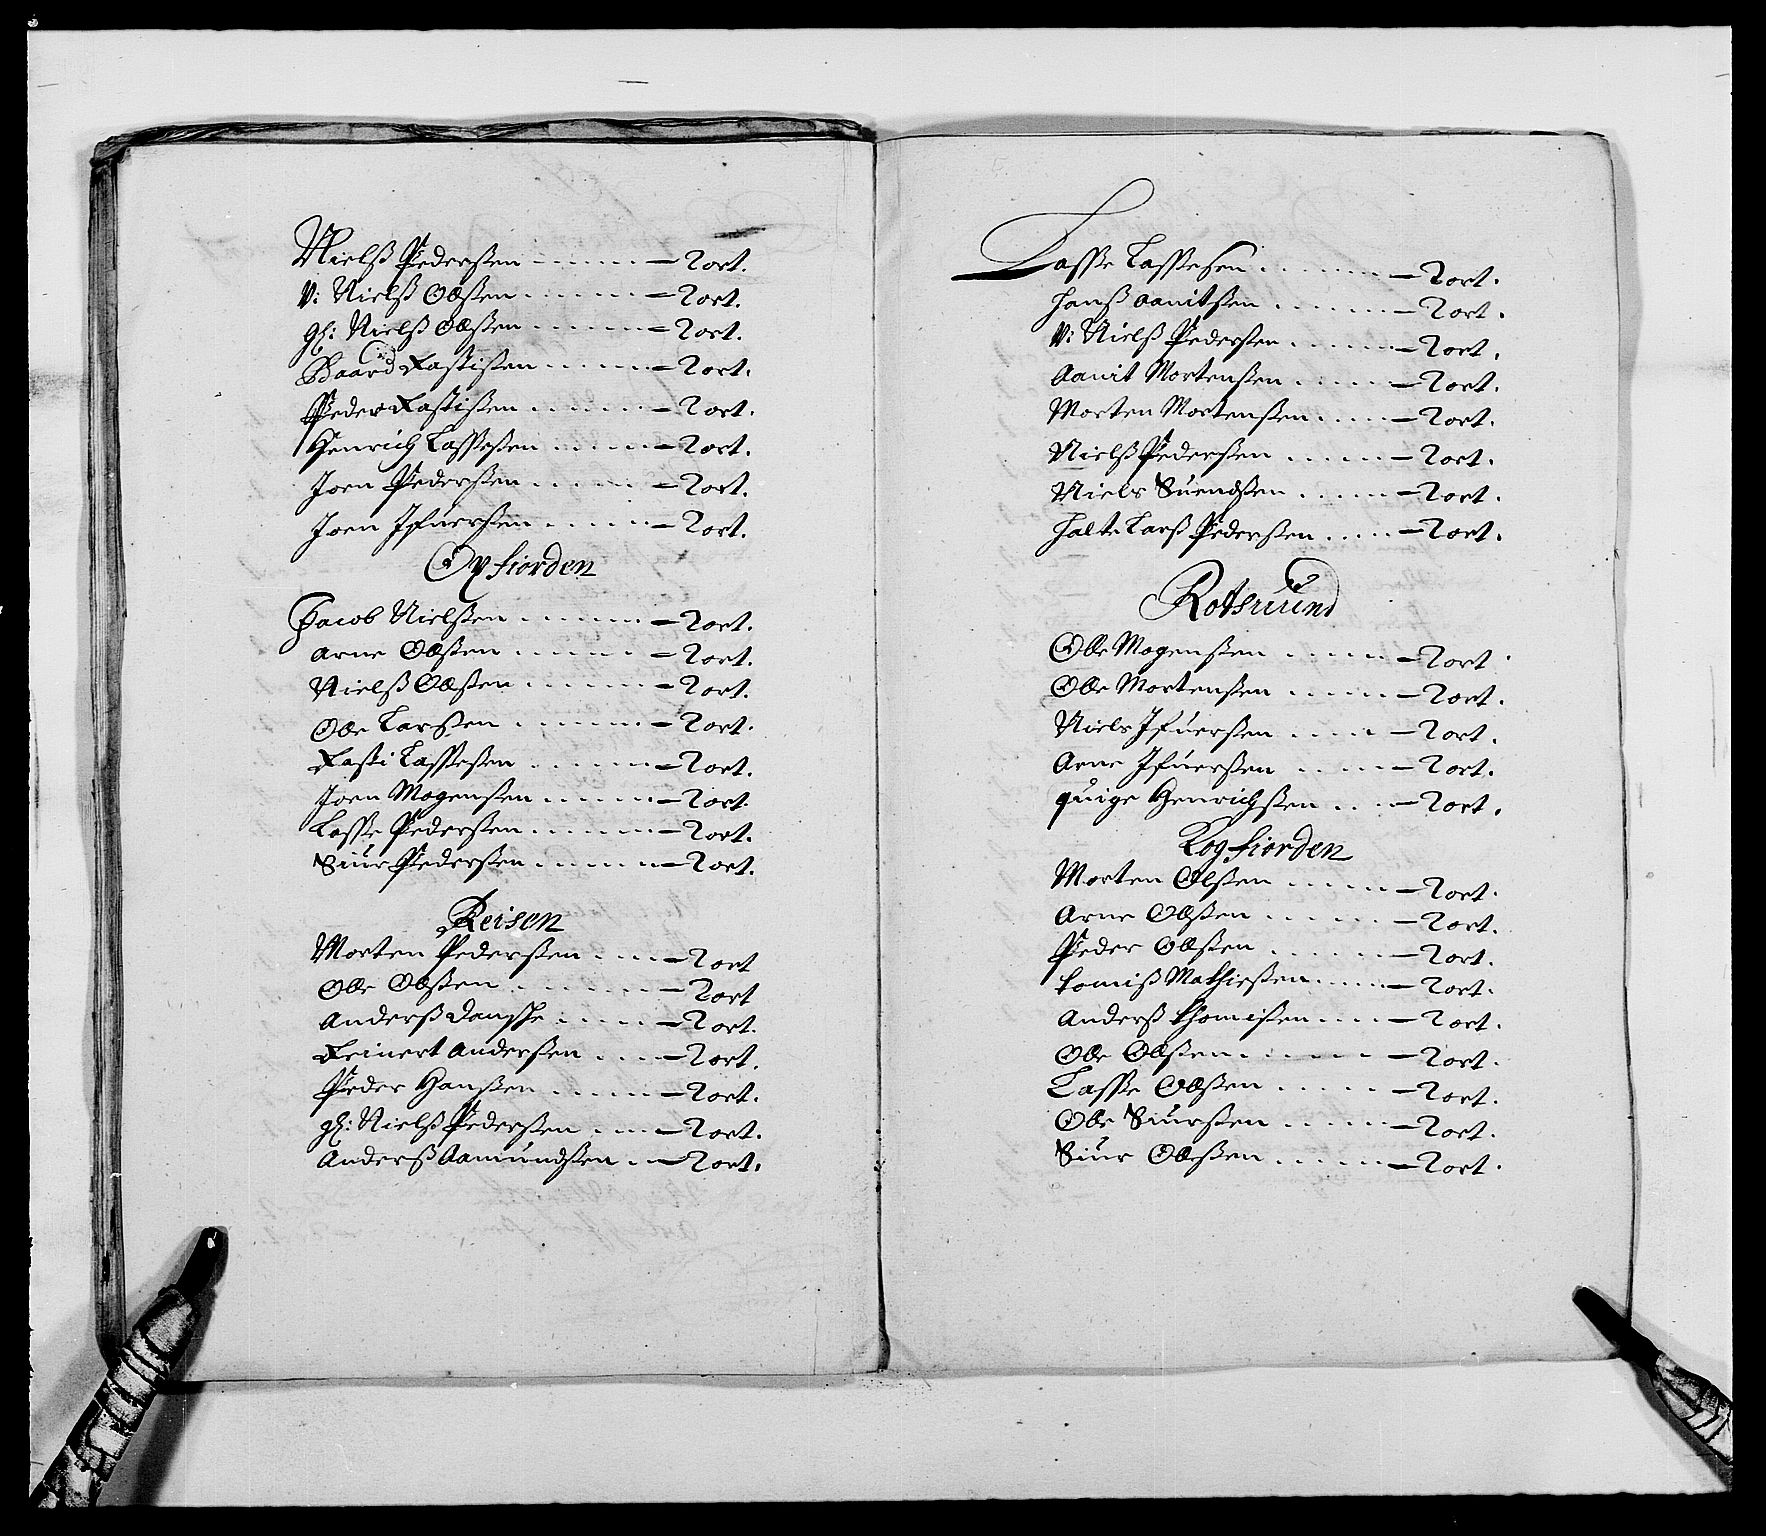 Nielß Pederßen - - - - - - 2 ort.
V: Nielß Olßen - - - - - - 2 ort.
gl: Nielß Olßen - - - - - - 2 ort.
Baard Fastißen - - - - - - 2 ort.
Peder Fastißen - - - - - - 2 ort.
Henrich Lasseßen - - - - - 2 ort.
Joen Pederßen - - - - - - 2 ort.
Joen Ifuerßen - - - - - - 2 ort.
Oxfiorden
Jacob Nielßen - - - - - - 2 ort.
Arne Olßen - - - - - - 2 ort.
Nielß Olßen - - - - - - 2 ort.
Olle Larßen - - - - - - 2 ort.
Fasti Lasseßen - - - - - - 2 ort.
Joen Mogenßen - - - - - - 2 ort.
Lasse Pederßen - - - - - - 2 ort.
Siur Pederßen - - - - - - 2 ort.
Reisen
Morten Pederßen - - - - 2 ort
Olle Olßen - - - - - - 2 ort
Anderß Danske - - - - - 2 ort.
Reinert Anderßen - - - - 2 ort.
Peder Hanßen - - - - - 2 ort.
gl: Nielß Pederßen - - - - 2 ort.
Anderß Aamundßen - - - 2 ort.
Lasse Lasseßen - - - - - - 2 ort.
Hanß Aanitßen - - - - - - 2 ort.
V: Nielß Pederßen - - - - - 2 ort.
Aanit Mortenßen - - - - - 2 ort.
Morten Mortenßen - - - - 2 ort.
Nielß Pederßen - - - - - 2 ort.
Niels Suendßen - - - - - 2 ort.
Halte Larß Pederßen - - - - 2 ort.
Rotsuund
Olle Mogenßen - - - - - 2 ort.
Olle Mortenßen - - - - - 2 ort.
Niels Ifuerßen - - - - - 2 ort.
Arne Ifuerßen - - - - - 2 ort.
quige Henrichßen - - - - 2 ort.
Logfiorden
Morten Olßen - - - - - 2 ort.
Arne Olßen - - - - - - 2 ort.
Peder Olßen - - - - - - 2 ort.
Tomiß Mathießen - - - - - 2 ort.
Anderß Thomißen - - - - 2 ort.
Olle Olßen - - - - - - 2 ort.
Lasse Olßen - - - - - - 2 ort.
Olle Siurßen - - - - - - 2 ort.
Siur Olleßen - - - - - - 2 ort.